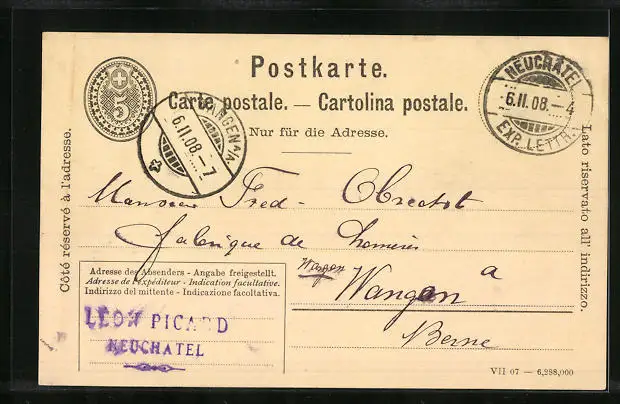 5
Postkarte.
Carte postale. — Cartolina postale.
Nur für die Adresse.
NEUCHATEL
6.II.08.–4
EXP. LETTR.
WANGEN A/A.
6.II.08.–7
Côté réservé à l'adresse.
Lato riservato all' indirizzo.
Monsieur Fred - Obrecht
fabrique de
à
Wangen
Wangen
Berne
Adresse des Absenders - Angabe freigestellt.
Adresse de l'expéditeur - Indication facultative.
Indirizzo del mittente - Indicazione facoltativa.
LÉON PICARD
NEUCHATEL
VII 07 — 6,288,000